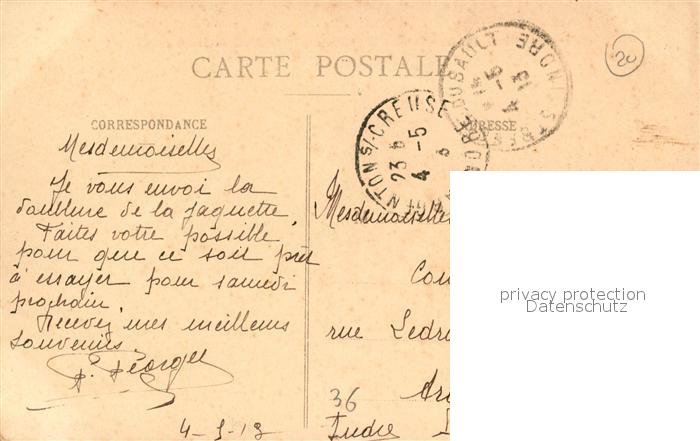 CARTE POSTALE
20
CORRESPONDANCE
ADRESSE
Mesdemoiselles
Je vous envoi la
doublure de la jaquette.
Faites votre possible
pour que ce soit prêt
à essayer pour samedi
prochain.
Recevez mes meilleurs
souvenirs
Mesdemoiselles
rue Ledru
36
Indre
4-5-13
S/CREUSE
4-5
INDRE
privacy protection
Datenschutz